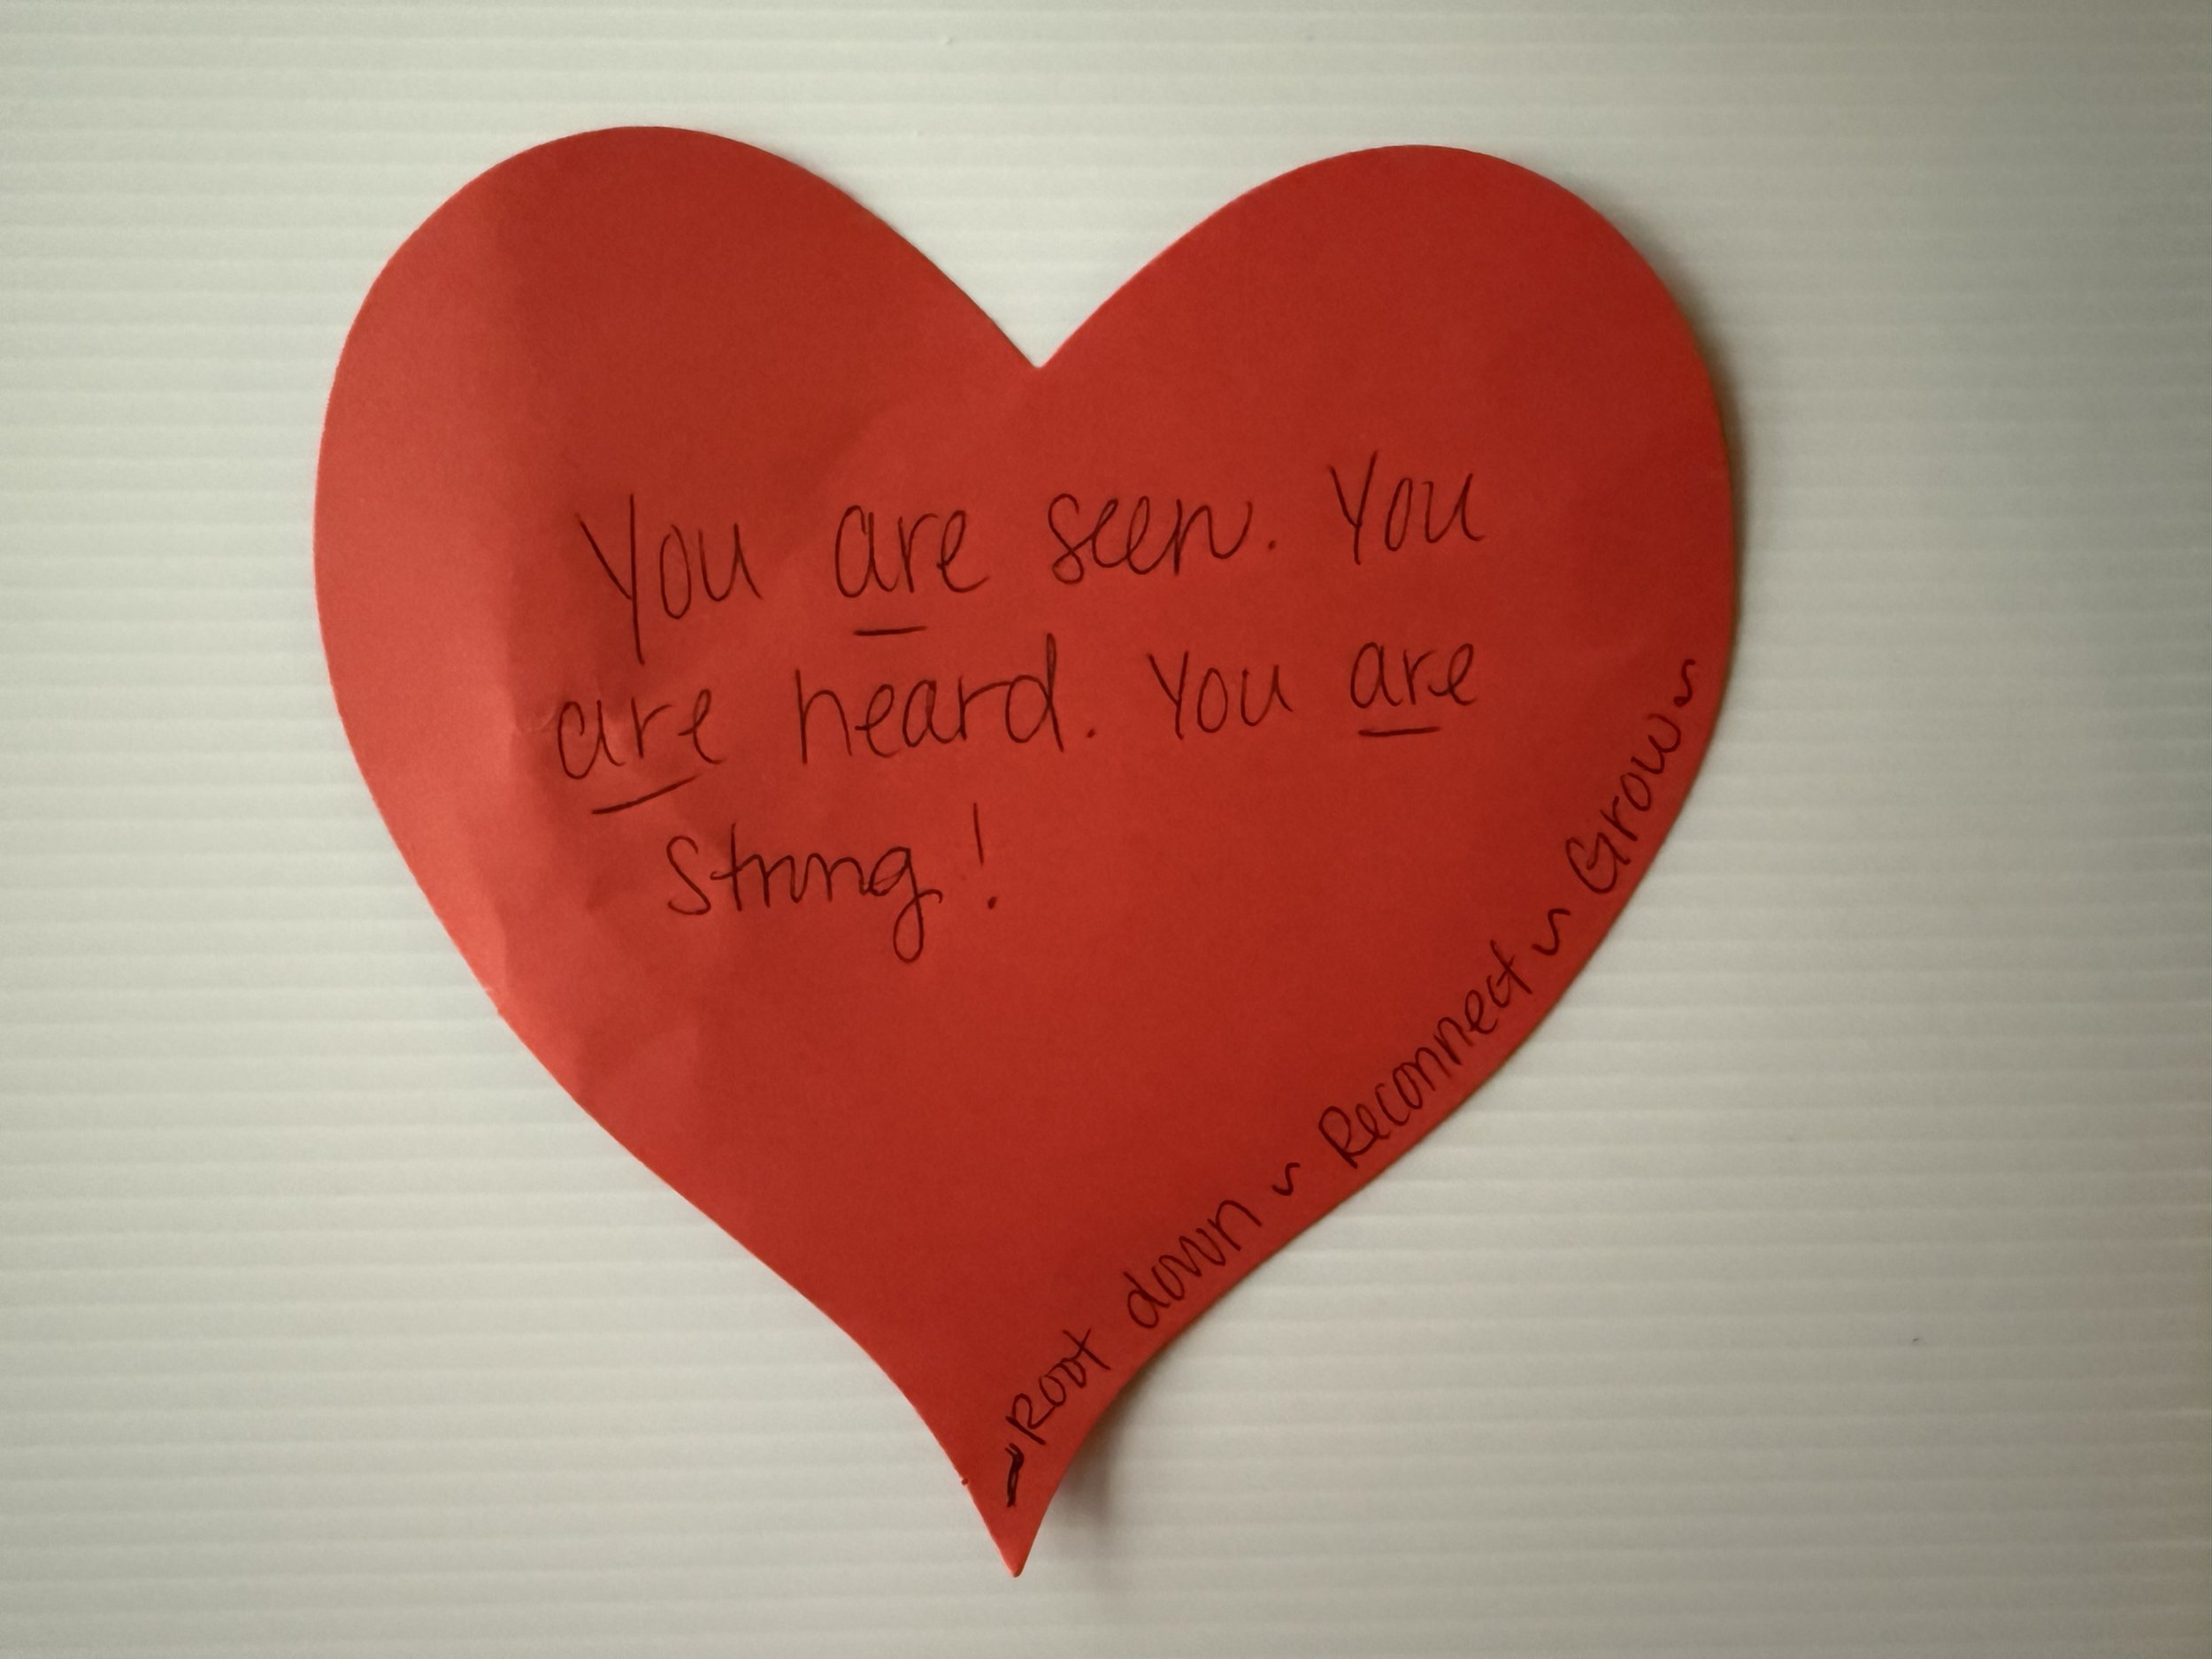 You are seen. You
are heard. You are
strong!
~ Root down ~ Reconnect ~ Grow ~